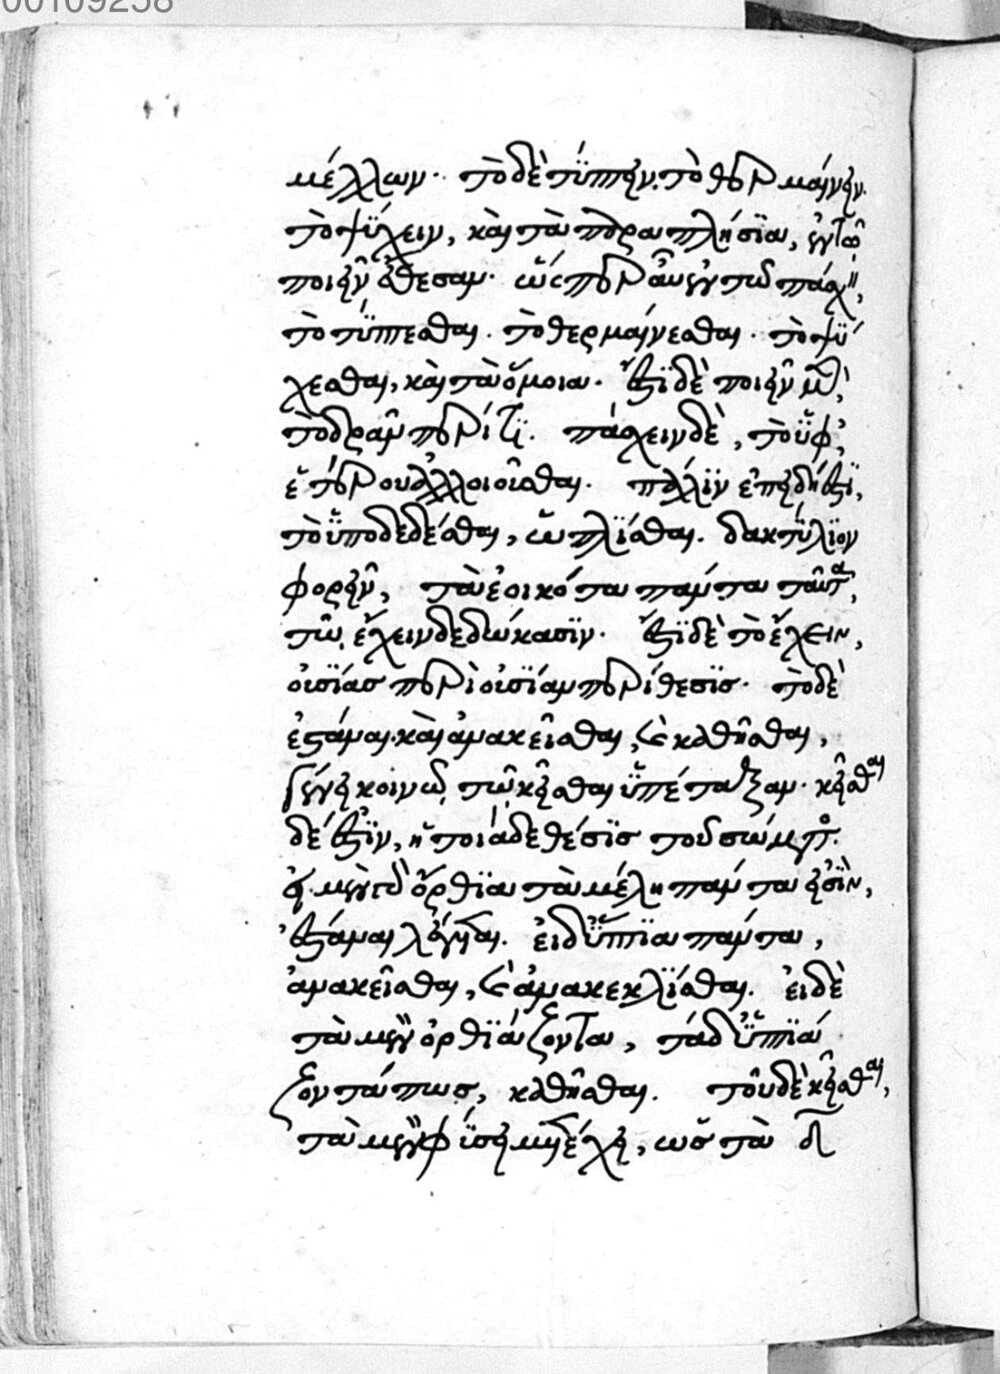 00109258
μέλλων. τὸ δὲ τύπτειν. τὸ θερμαίνειν.
τὸ ψύχειν, καὶ τὰ παραπλήσια, ἐν τῶ
ποιεῖν ἔθεσαν. ὥσπερ αὖ ἐν τῶ πάσχειν,
τὸ τύπτεσθαι. τὸ θερμαίνεσθαι. τὸ ψύ
χεσθαι, καὶ τὰ ὅμοια. ἔστι δὲ ποιεῖν μὲν,
τὸ δρᾶν περί τι. πάσχειν δὲ, τὸ ὑφ'
ἑτέρου ἀλλοιοῦσθαι. πάλιν ἐπειδή ἐστι,
τὸ ὑποδεδέσθαι, ὡπλίσθαι. δακτύλιον
φορεῖν, τὰ ἐοικότα πάντα ταῦτα,
τῶ ἔχειν δεδώκασιν. ἔστι δὲ τὸ ἔχειν,
οὐσίας περὶ οὐσίαν περίθεσις. τὸ δὲ
ἑστάναι. καὶ ἀνακεῖσθαι, καὶ καθῆσθαι,
γένει κοινῶ τῶ κεῖσθαι ὑπέταξαν. κεῖσθαι
δέ ἐστιν, ἡ ποιὰ δὲ θέσις τοῦ σώματος.
εἰ μὲν γὰρ ὄρθια τὰ μέλη πάντα εἰσὶν,
ἑστάναι λέγεται. εἰ δ' ὕπτια πάντα,
ἀνακεῖσθαι, καὶ ἀνακεκλίσθαι. εἰ δὲ
τὰ μὲν ὀρθιάζοντα, τὰ δ' ὑπτιά
ζοντά πως, καθῆσθαι. τοῦ δὲ κεῖσθαι,
τὰ μὲν φύσει μετέχει, ὡς τὰ δέ